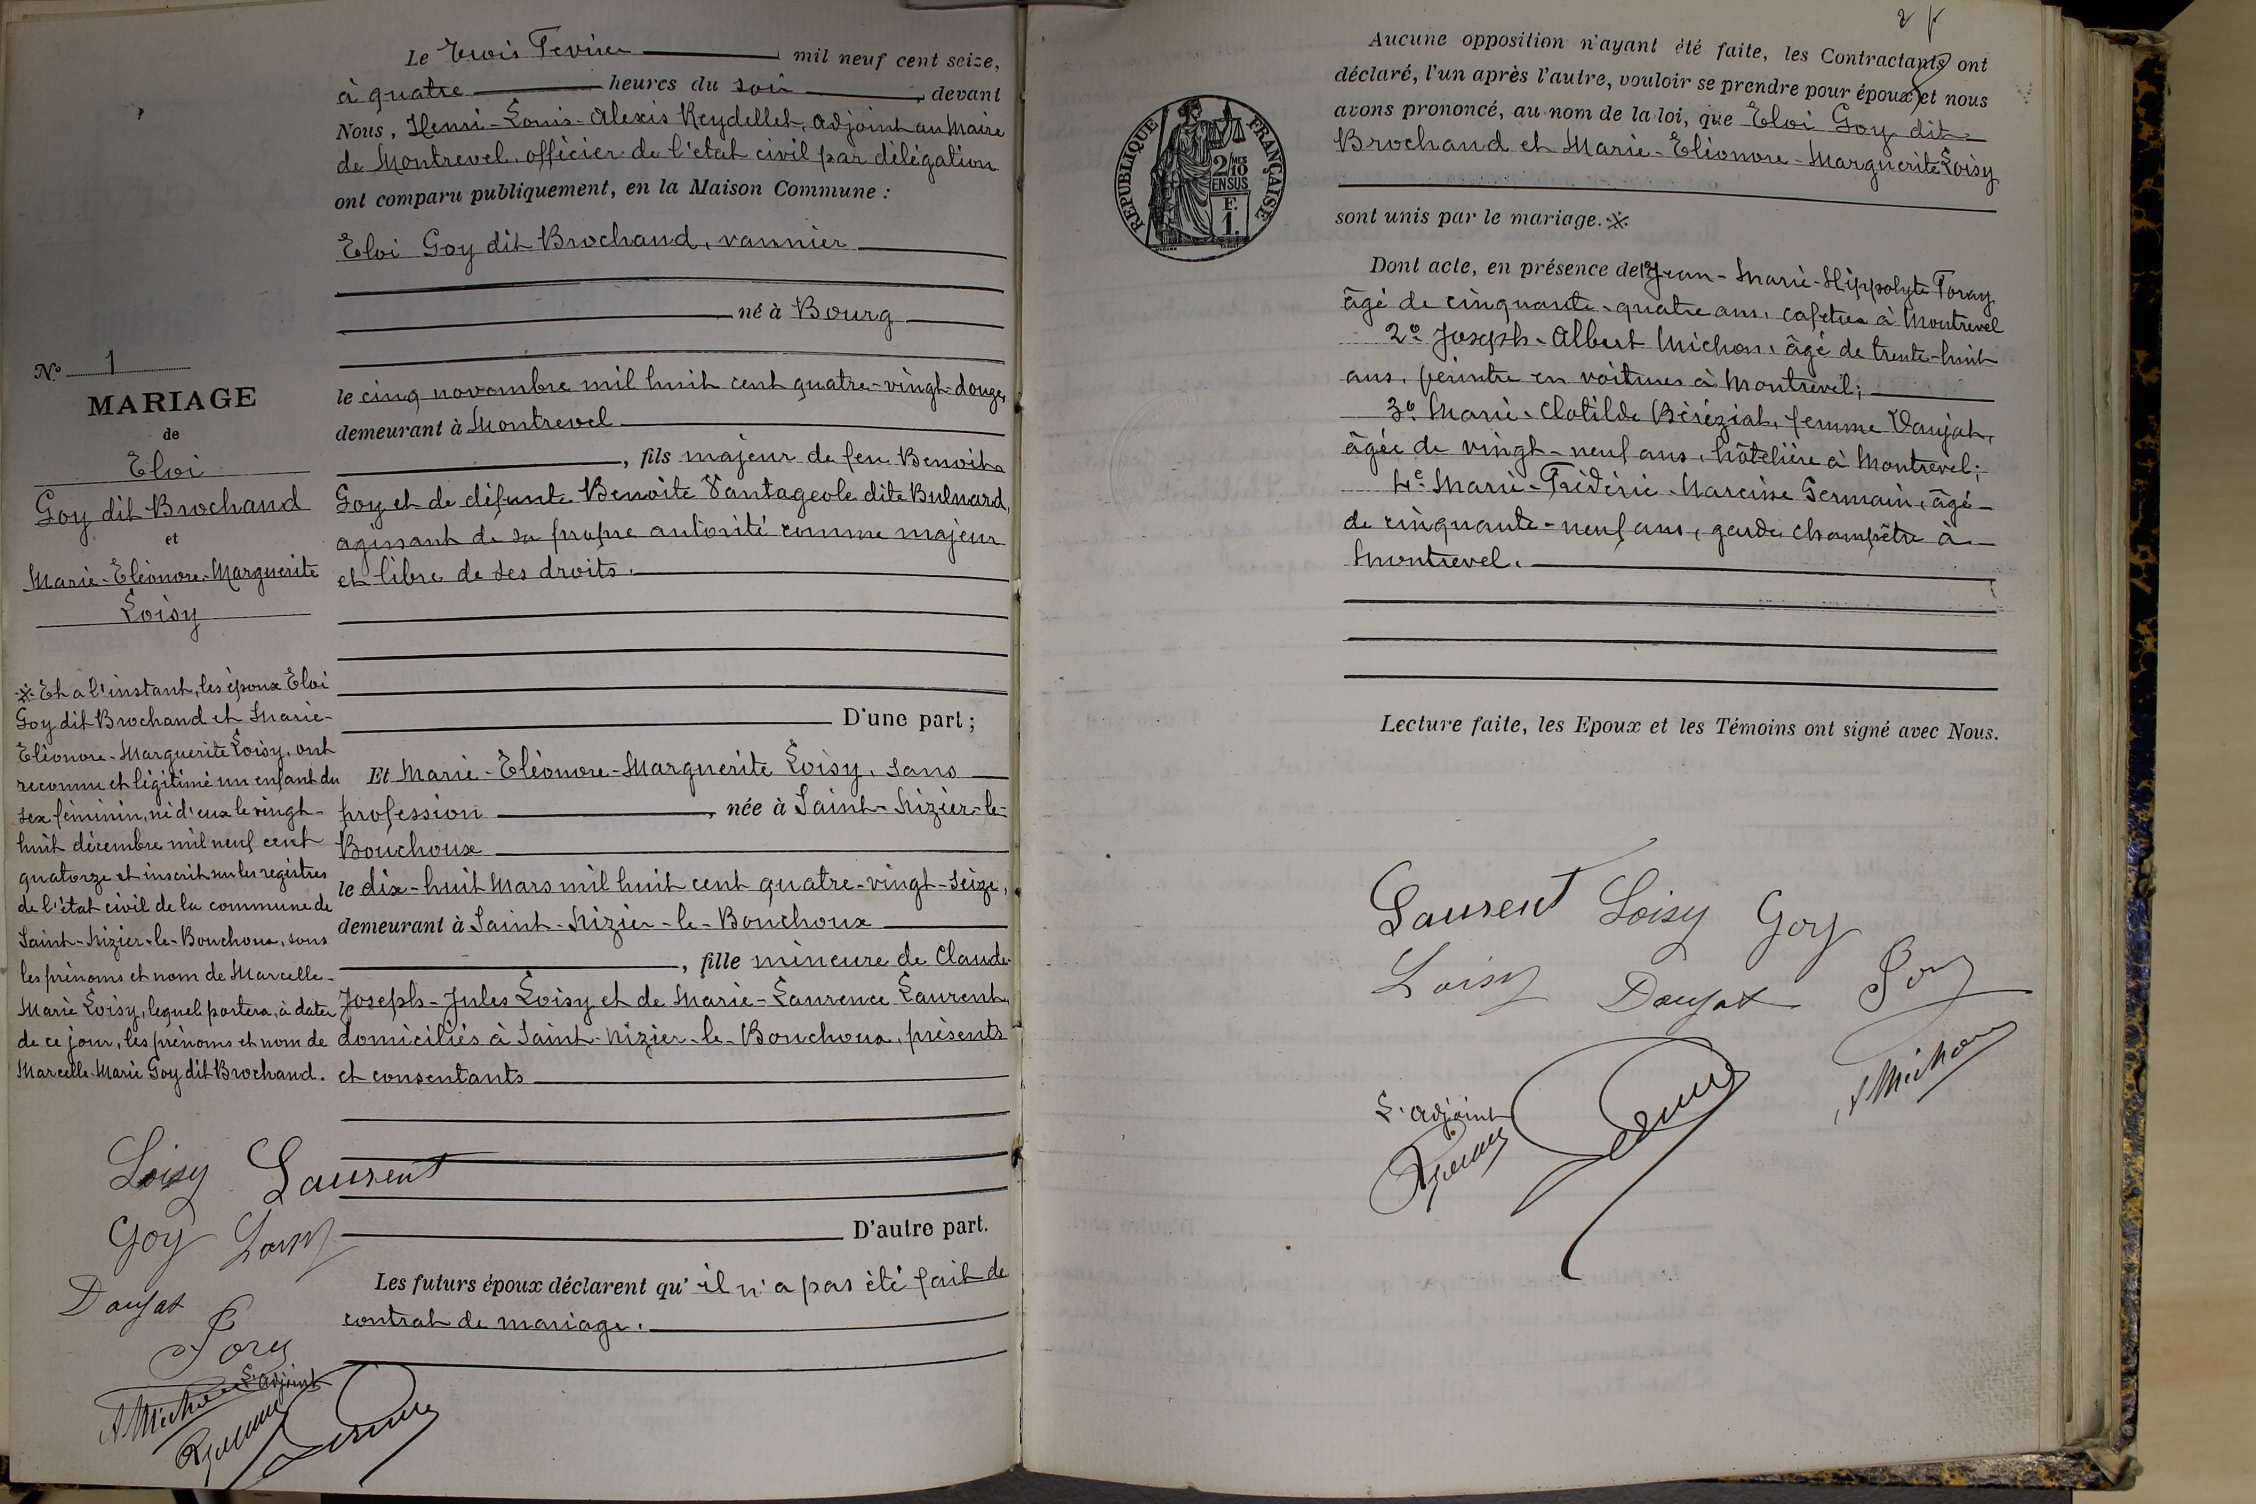 N.º 1
MARIAGE
de
Eloi
Goy dit Brochand
et
Marie-Eléonore-Marguerite
Loisy
※ Et a l'instant, les époux Eloi
Goy dit Brochand et Marie-
Eléonore-Marguerite Loisy, ont
reconnu et légitimé un enfant du
sexe féminin, né d'eux le vingt-
huit décembre mil neuf cent
quatorze et inscrit sur les registres
de l'état civil de la commune de
Saint-Nizier-le-Bouchoux, sous
les prénoms et nom de Marcelle-
Marie Loisy, lequel portera, à dater
de ce jour, les prénoms et nom de
Marcelle-Marie Goy dit Brochand.
Loisy Laurent
Goy Loisy
Daujat
Foray
L'adjoint
AMichon
Le trois Février mil neuf cent seize,
à quatre heures du soir, devant
Nous, Henri-Louis-Alexis Reydellet, adjoint au Maire
de Montrevel, officier de l'état civil par délégation
ont comparu publiquement, en la Maison Commune :
Eloi Goy dit Brochand, vannier
né à Bourg
le cinq novembre mil huit cent quatre-vingt-douze,
demeurant à Montrevel
, fils majeur de feu Benoit
Goy et de défunte Benoite Vantageole dite Buluard,
agissant de sa propre autorité comme majeur
et libre de ses droits.
D'une part ;
Et Marie-Eléonore-Marguerite Loisy, sans
profession, née à Saint-Nizier-le-
Bouchoux
le dix-huit Mars mil huit cent quatre-vingt-seize,
demeurant à Saint-Nizier-le-Bouchoux
, fille mineure de Claude-
Joseph-Jules Loisy et de Marie-Laurence Laurent,
domiciliés à Saint-Nizier-le-Bouchoux, présents
et consentants
D'autre part.
Les futurs époux déclarent qu'il n'a pas été fait de
contrat de mariage.
RÉPUBLIQUE FRANÇAISE
2/10MES
EN SUS
F.
1.
Aucune opposition n'ayant été faite, les Contractants ont
déclaré, l'un après l'autre, vouloir se prendre pour époux, et nous
avons prononcé, au nom de la loi, que Eloi Goy dit
Brochand et Marie-Eléonore-Marguerite Loisy
sont unis par le mariage. ※
Dont acte, en présence de 1º Jean-Marie-Hippolyte Foray
âgé de cinquante-quatre ans, cafetier à Montrevel
2º Joseph-Albert Michon, âgé de trente-huit
ans, peintre en voitures à Montrevel;
3º Marie-Clotilde Béréziat, femme Daujat,
âgée de vingt-neuf ans, hôtelière à Montrevel;
4º Marie-Frédéric-Narcisse Germain, âgé
de cinquante-neuf ans, garde champêtre à
Montrevel.
Lecture faite, les Epoux et les Témoins ont signé avec Nous.
Laurent Loisy Goy
Loisy Daujat Foray
L'adjoint
AMichon